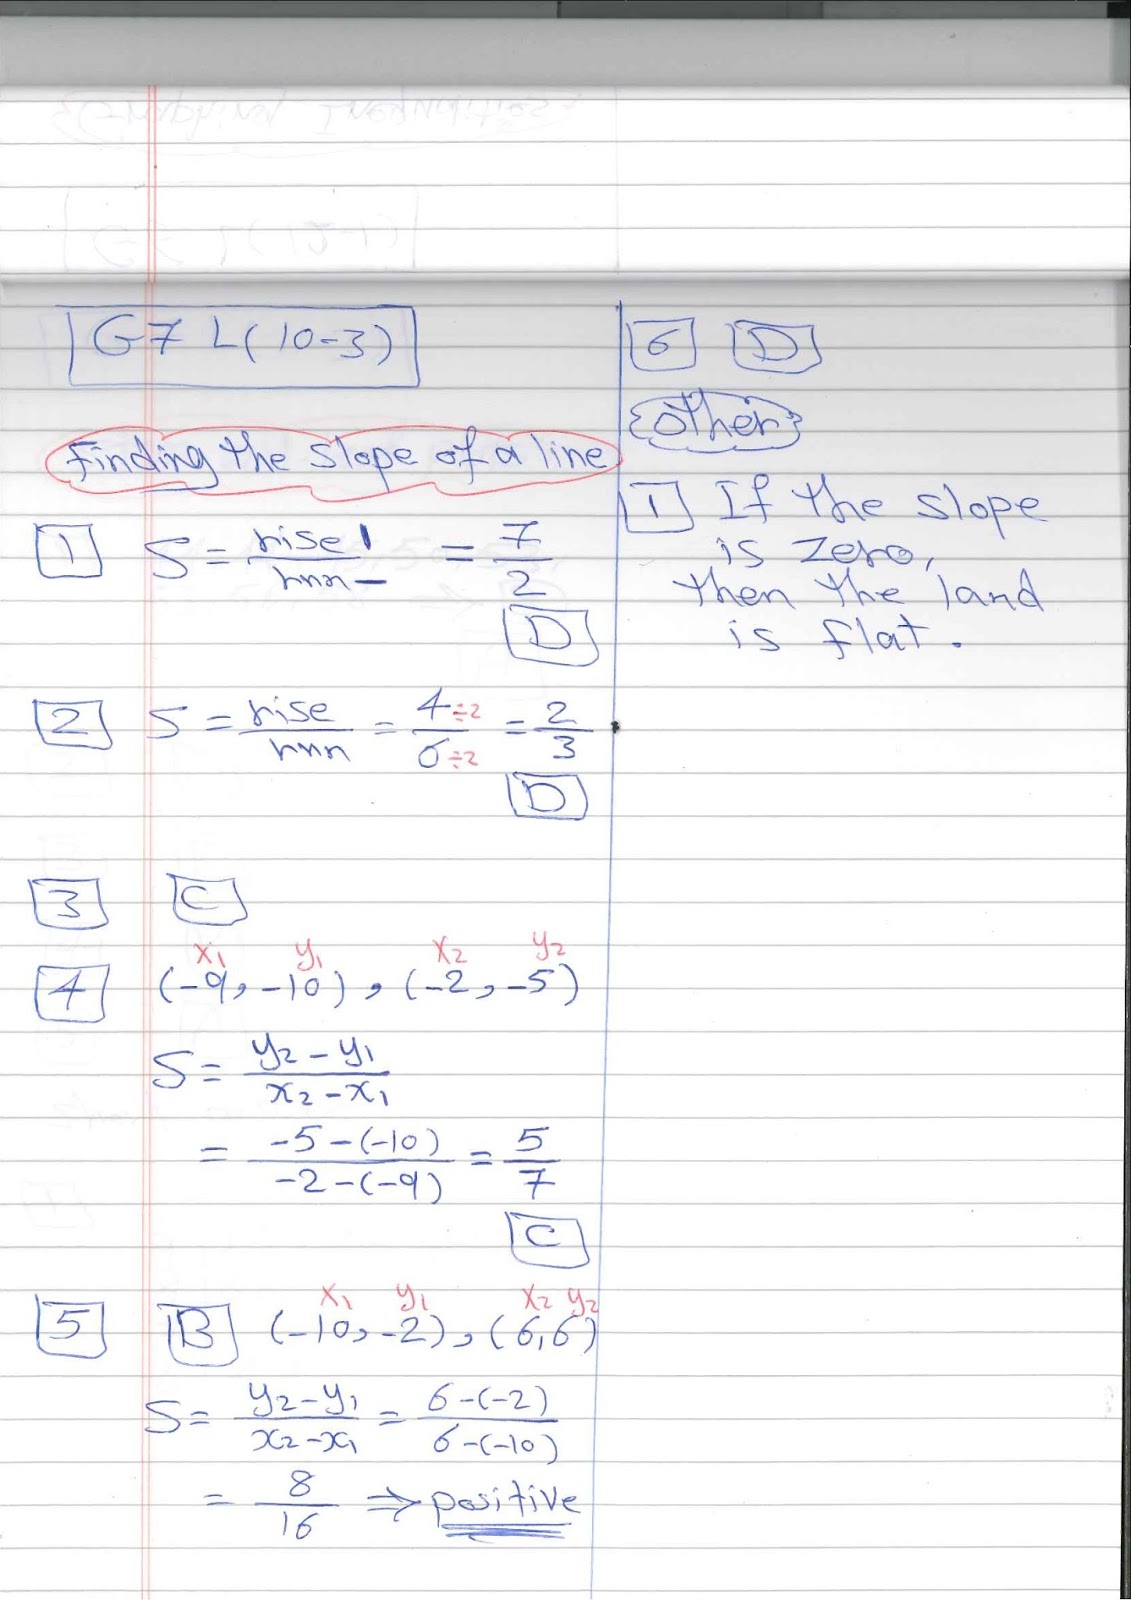 G7 L(10-3)
Finding the slope of a line
1 S = rise / run = 7/2
D
2 S = rise / run = 4÷2 / 6÷2 = 2/3
D
3 C
x1 y1 x2 y2
4 (-9, -10), (-2, -5)
S = y2 - y1 / x2 - x1
= -5 - (-10) / -2 - (-9) = 5/7
C
x1 y1 x2 y2
5 B (-10, -2), (6,6)
S = y2 - y1 / x2 - x1 = 6 - (-2) / 6 - (-10)
= 8/16 ⇒ positive
6 D
{other}
1 If the slope
is zero,
then the land
is flat.